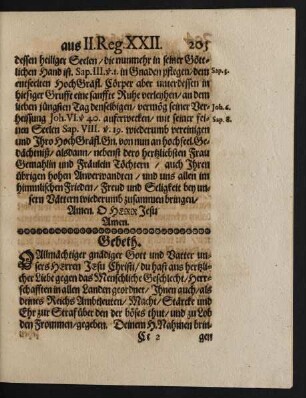 aus II. Reg. XXII. 203
dessen heiliger Seelen / die nunmehr in seiner Gött-
lichen Hand ist, Sap. III. v. 1. in Gnaden pflegen / dem Sap. 3.
entseelten HochGräfl. Cörper aber unterdessen in
hiesiger Grufft eine sanffte Ruhe verleihen / an dem
lieben jüngsten Tag denselbigen / vermög seiner Ver- Joh. 6.
heissung Joh. VI. v 40. aufferwecken / mit seiner fei-
nen Seelen Sap. VIII. v. 19. wiederumb vereinigen Sap. 8.
und Ihro HochGräfl. Gn. von nun an hochseel. Ge-
dächtniß / alsdann / nebenst dero hertzlichsten Frau
Gemahlin und Fräulein Töchtern / auch Ihren
übrigen hohen Anverwandten / und uns allen im
himmlischen Frieden / Freud und Seligkeit bey un-
sern Vättern wiederumb zusammen bringen /
Amen. O HErr Jesu
Amen.
Gebeth.
O Allmächtiger gnädiger Gott und Vatter un-
sers HErren JEsu Christi / du hast aus hertzli-
cher Liebe gegen das Menschliche Geschlecht / Herr-
schafften in allen Landen geordnet / Ihnen auch / als
deines Reichs Ambtleuten / Macht / Stärcke und
Ehr zur Straf über den der böses thut / und zu Lob
den Frommen / gegeben. Deinem H. Nahmen brin-
Cc 2 gen